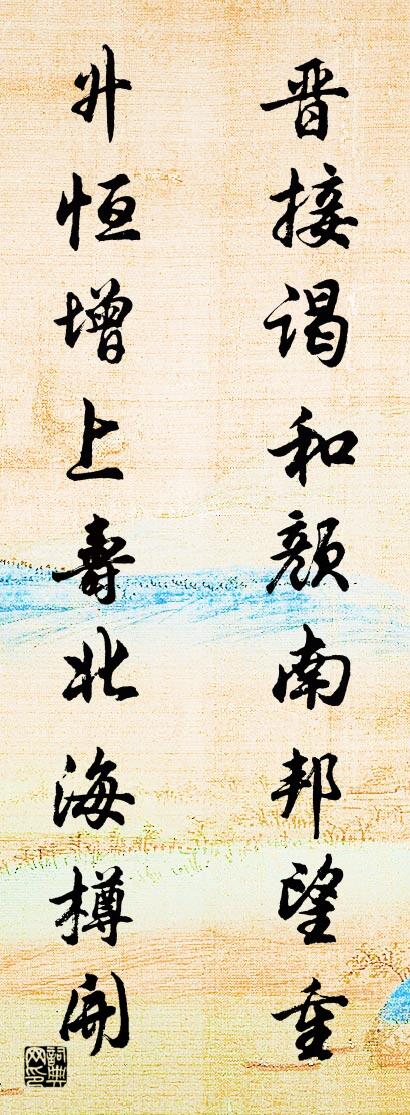 晋接谒和颜南邦望重
升恒增上壽北海樽開
詞典网印